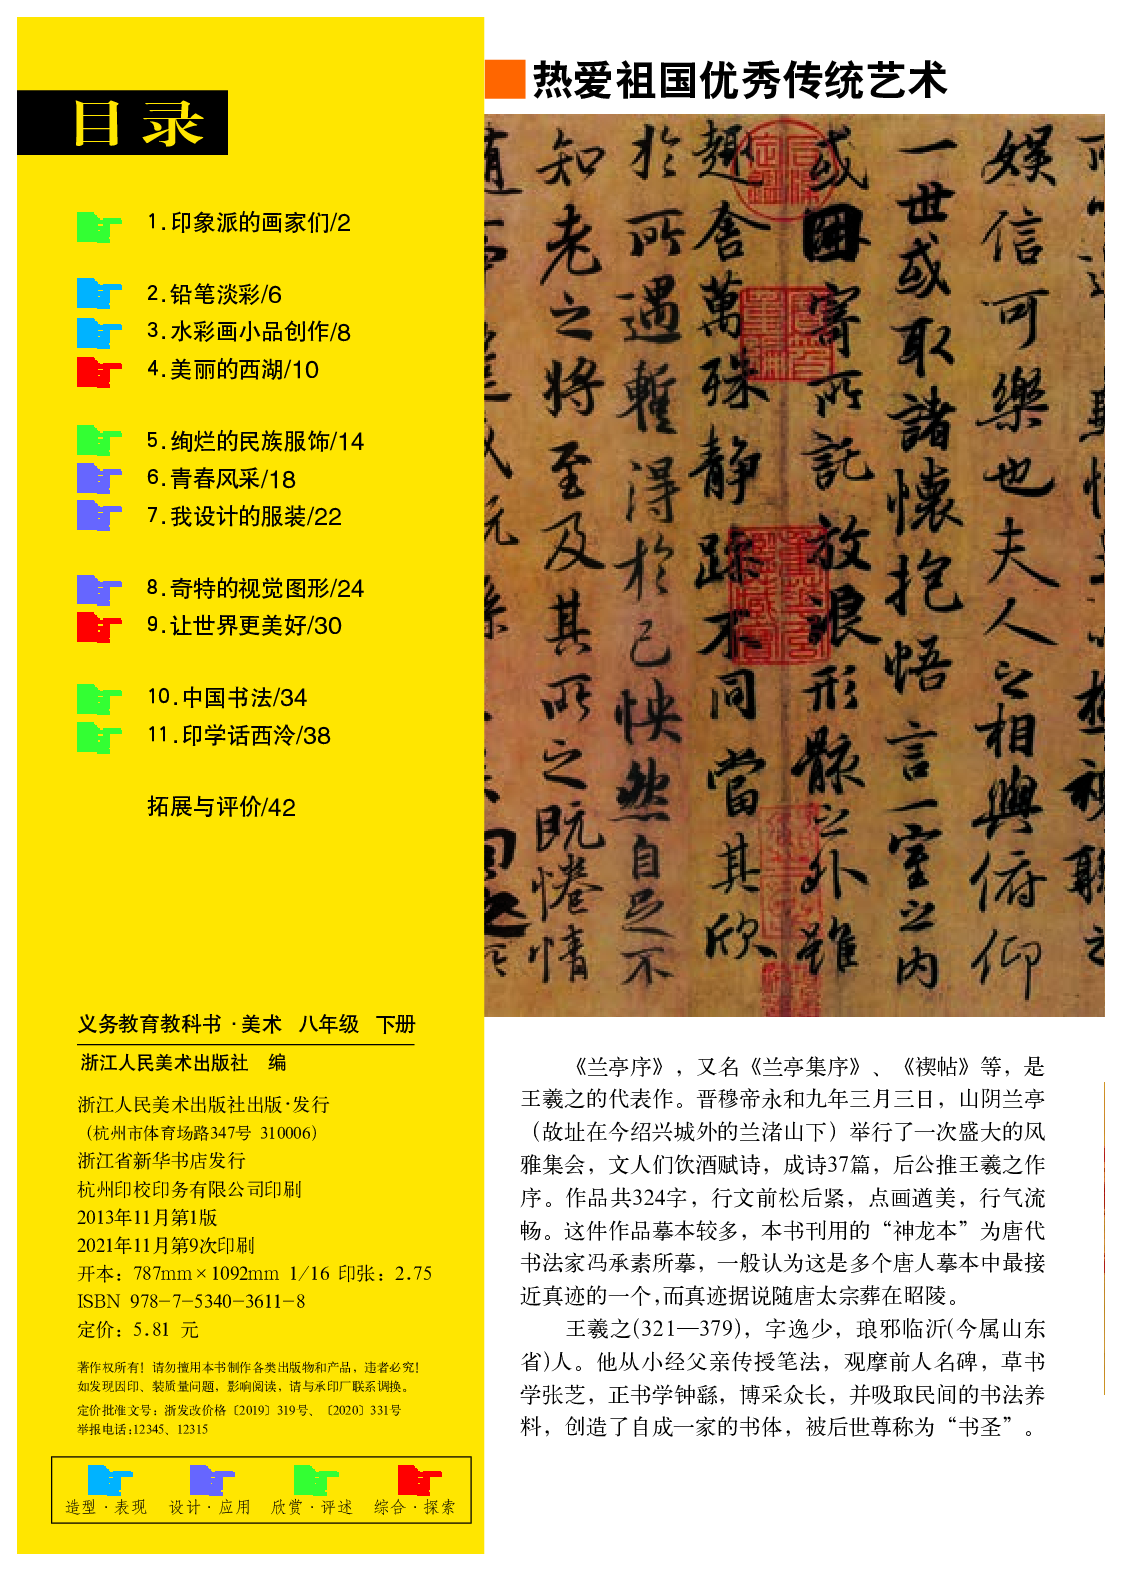 目录
1.印象派的画家们/2
2.铅笔淡彩/6
3.水彩画小品创作/8
4.美丽的西湖/10
5.绚烂的民族服饰/14
6.青春风采/18
7.我设计的服装/22
8.奇特的视觉图形/24
9.让世界更美好/30
10.中国书法/34
11.印学话西泠/38
拓展与评价/42
义务教育教科书·美术 八年级 下册
浙江人民美术出版社 编
浙江人民美术出版社出版·发行
（杭州市体育场路347号 310006）
浙江省新华书店发行
杭州印校印务有限公司印刷
2013年11月第1版
2021年11月第9次印刷
开本：787mm×1092mm 1/16 印张：2.75
ISBN 978-7-5340-3611-8
定价：5.81 元
著作权所有！请勿擅用本书制作各类出版物和产品，违者必究！
如发现因印、装质量问题，影响阅读，请与承印厂联系调换。
定价批准文号：浙发改价格〔2019〕319号、〔2020〕331号
举报电话:12345、12315
造型·表现 设计·应用 欣赏·评述 综合·探索
热爱祖国优秀传统艺术
娱信可樂也夫人之相與俯仰
一世或取諸懷抱悟言一室之内
或因寄所託放浪形骸之外雖
趣舍萬殊静躁不同當其欣
於所遇暫得於己怏然自足不
知老之將至及其所之既惓情
《兰亭序》，又名《兰亭集序》、《禊帖》等，是
王羲之的代表作。晋穆帝永和九年三月三日，山阴兰亭
（故址在今绍兴城外的兰渚山下）举行了一次盛大的风
雅集会，文人们饮酒赋诗，成诗37篇，后公推王羲之作
序。作品共324字，行文前松后紧，点画遒美，行气流
畅。这件作品摹本较多，本书刊用的“神龙本”为唐代
书法家冯承素所摹，一般认为这是多个唐人摹本中最接
近真迹的一个,而真迹据说随唐太宗葬在昭陵。
王羲之(321—379)，字逸少，琅邪临沂(今属山东
省)人。他从小经父亲传授笔法，观摩前人名碑，草书
学张芝，正书学钟繇，博采众长，并吸取民间的书法养
料，创造了自成一家的书体，被后世尊称为“书圣”。